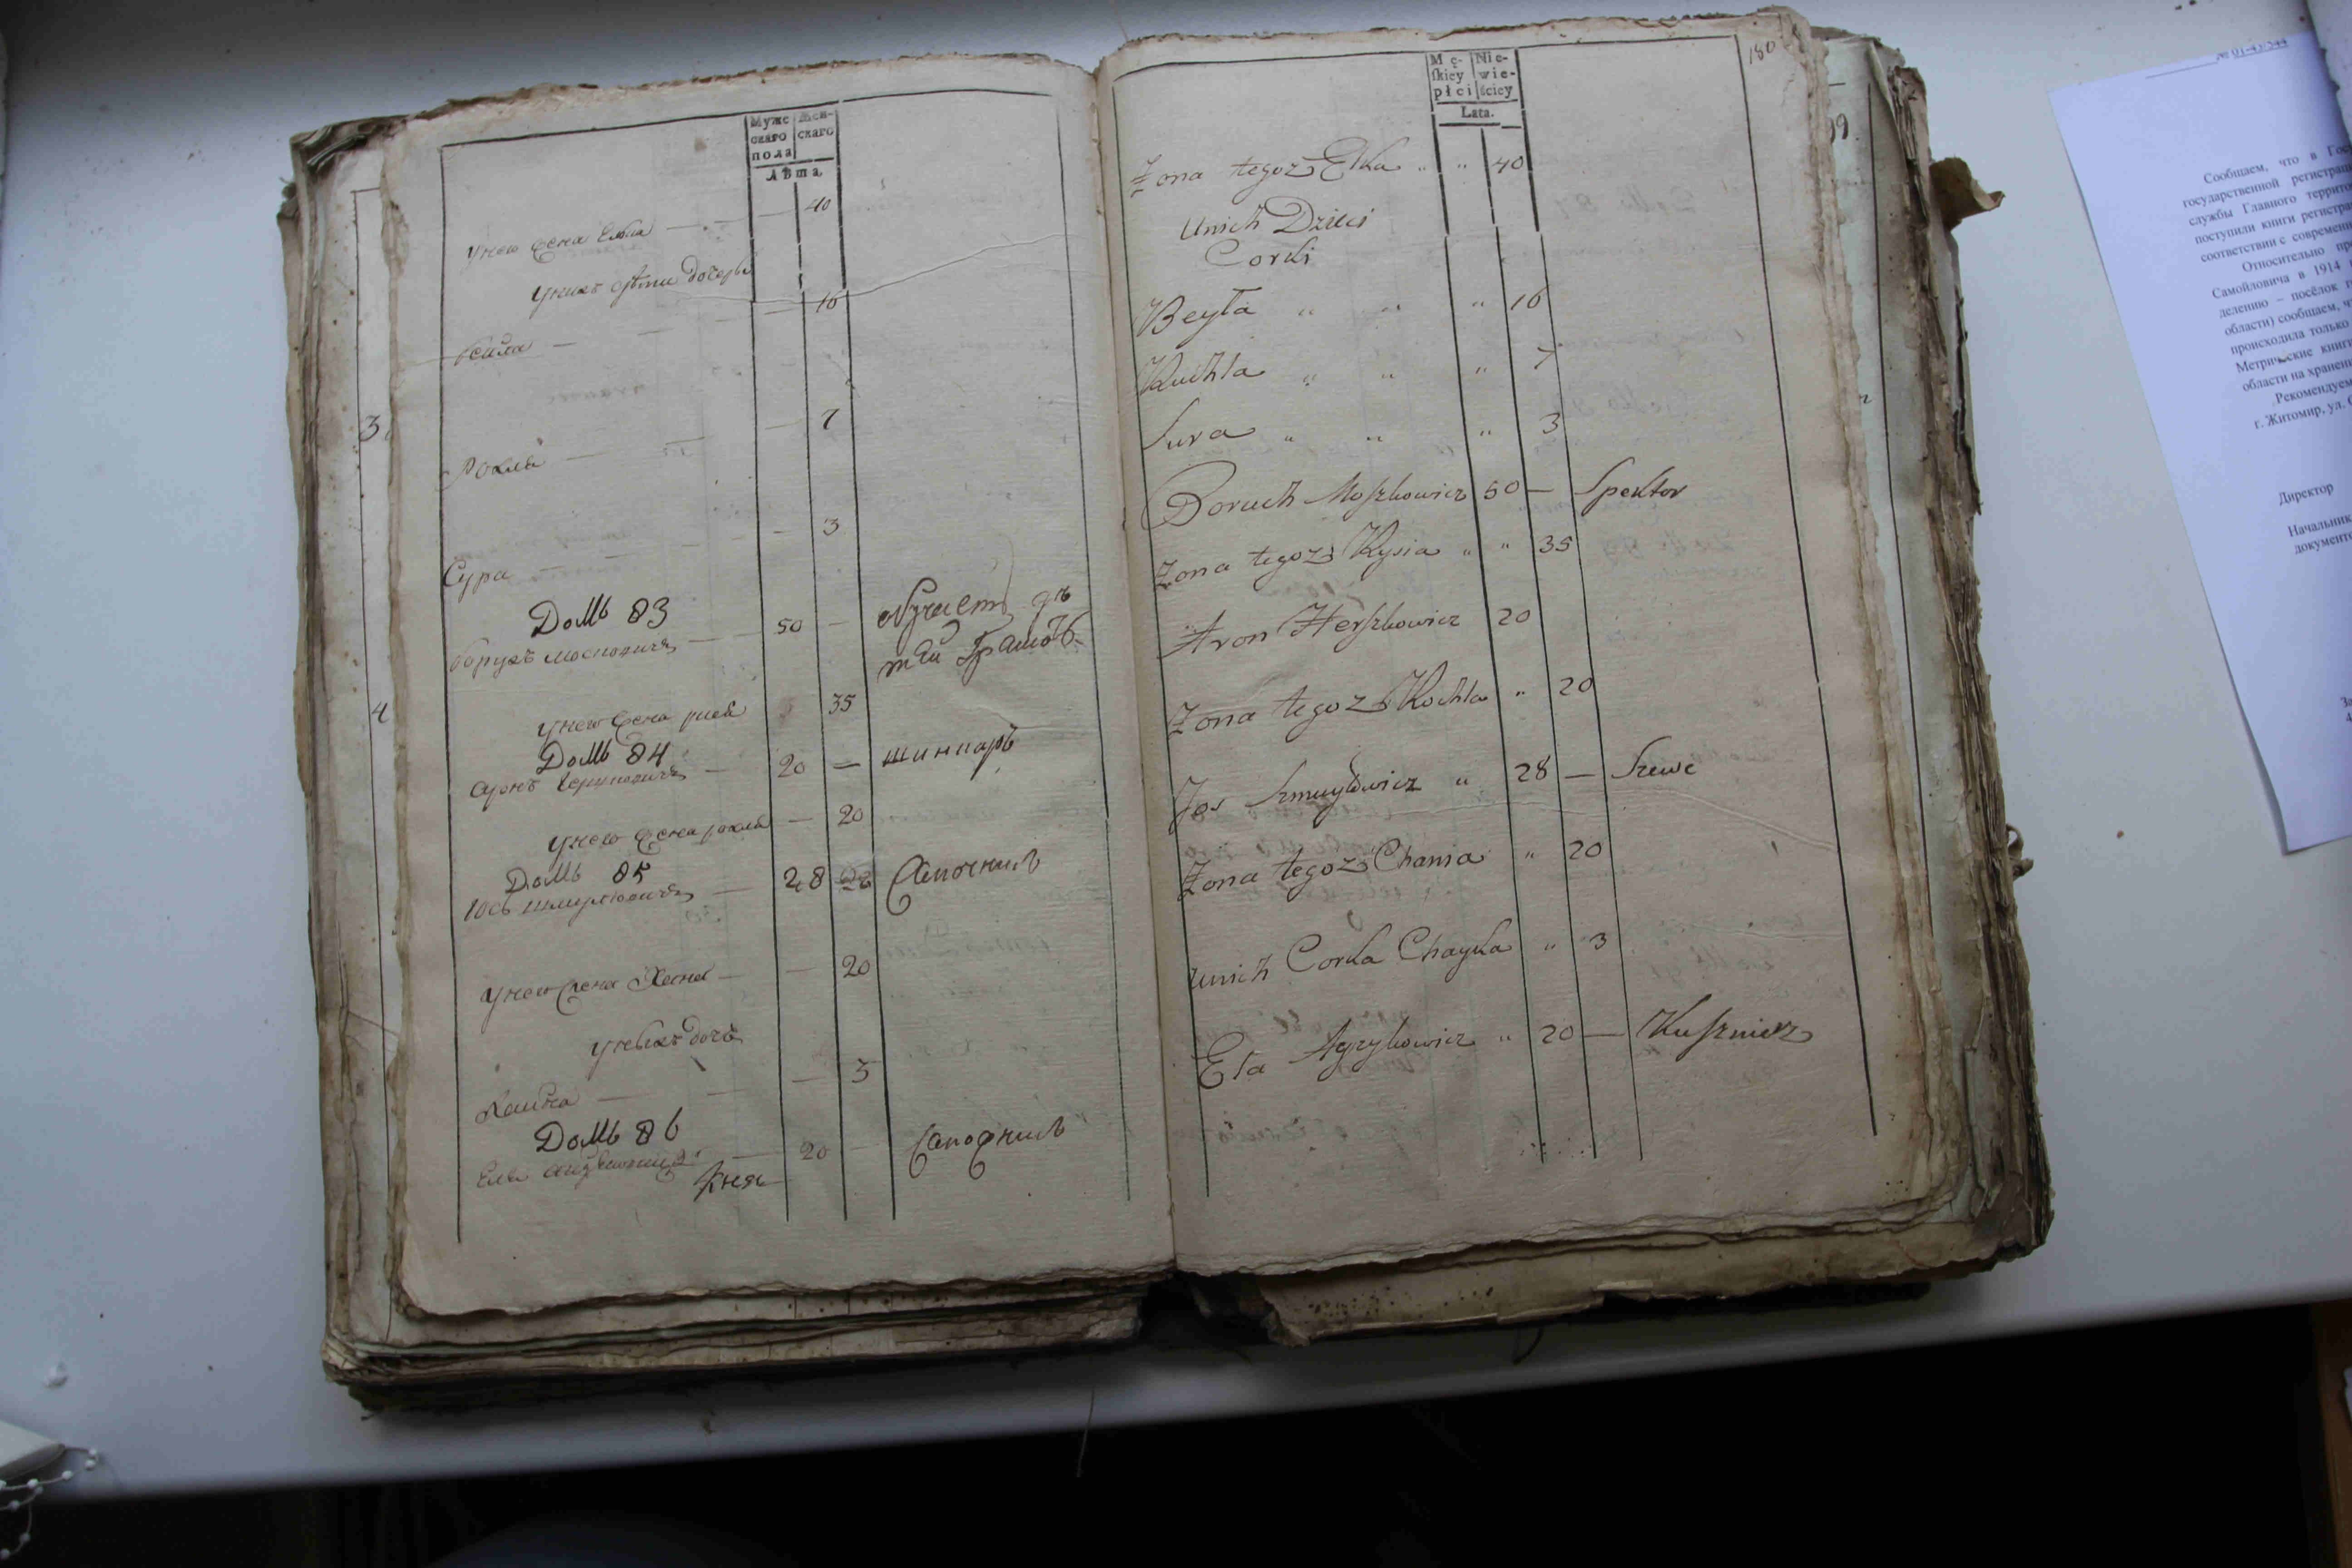 Муже
скаго
пола
Жен-
скаго
Лѣта
40
Унего жена Елка
Унихъ дѣти дочерьи
Бейла 16
Рохля 7
3
Сура
Домъ 83
Борухъ Мосповичъ 50 — обучаетъ дѣ
тей Грамотѣ
Унего жена рися 35
Домъ 84
Аронъ Гершковичъ — 20 — шинкарь
Унего жена рохля — 20
Домъ 85
Іось Шмуйловичъ — 28 Сапожникъ
Унего жена Хана — 20
Унихъ дочь
Хайка — 3
Домъ 86
Еля 20 Сапожникъ
3
4
180
Mę-
ſkiey
płci
Nie-
wie-
ściey
Lata.
Zona tegoz Elka " " 40
Unich Dzieci
Corki
Beyła " " " 16
Ruchla " " " 7
Sura " " " 3
Boruch Moszkowicz 50 — Spektor
Zona tegoz Rysia " " 35
Aron Herszkowicz 20
Zona tegoz Rochla " 20
Jos Szmuylowicz " 28 — Szewc
Zona tegoz Chana " 20
Unich Corka Chayka " 3
Ela Ayzykowicz " 20 — Kuszmierz
99.
№ 01-43/544
Сообщаем, что в Гос
государственной регистрац
службы Главного террито
поступили книги регистра
соответствии с современн
Относительно пр
Самойловича в 1914
делению – посёлок г
области) сообщаем, ч
происходила только
Метрические книги
области на хранени
Рекомендуем
г. Житомир, ул.
Директор
Начальник
документо